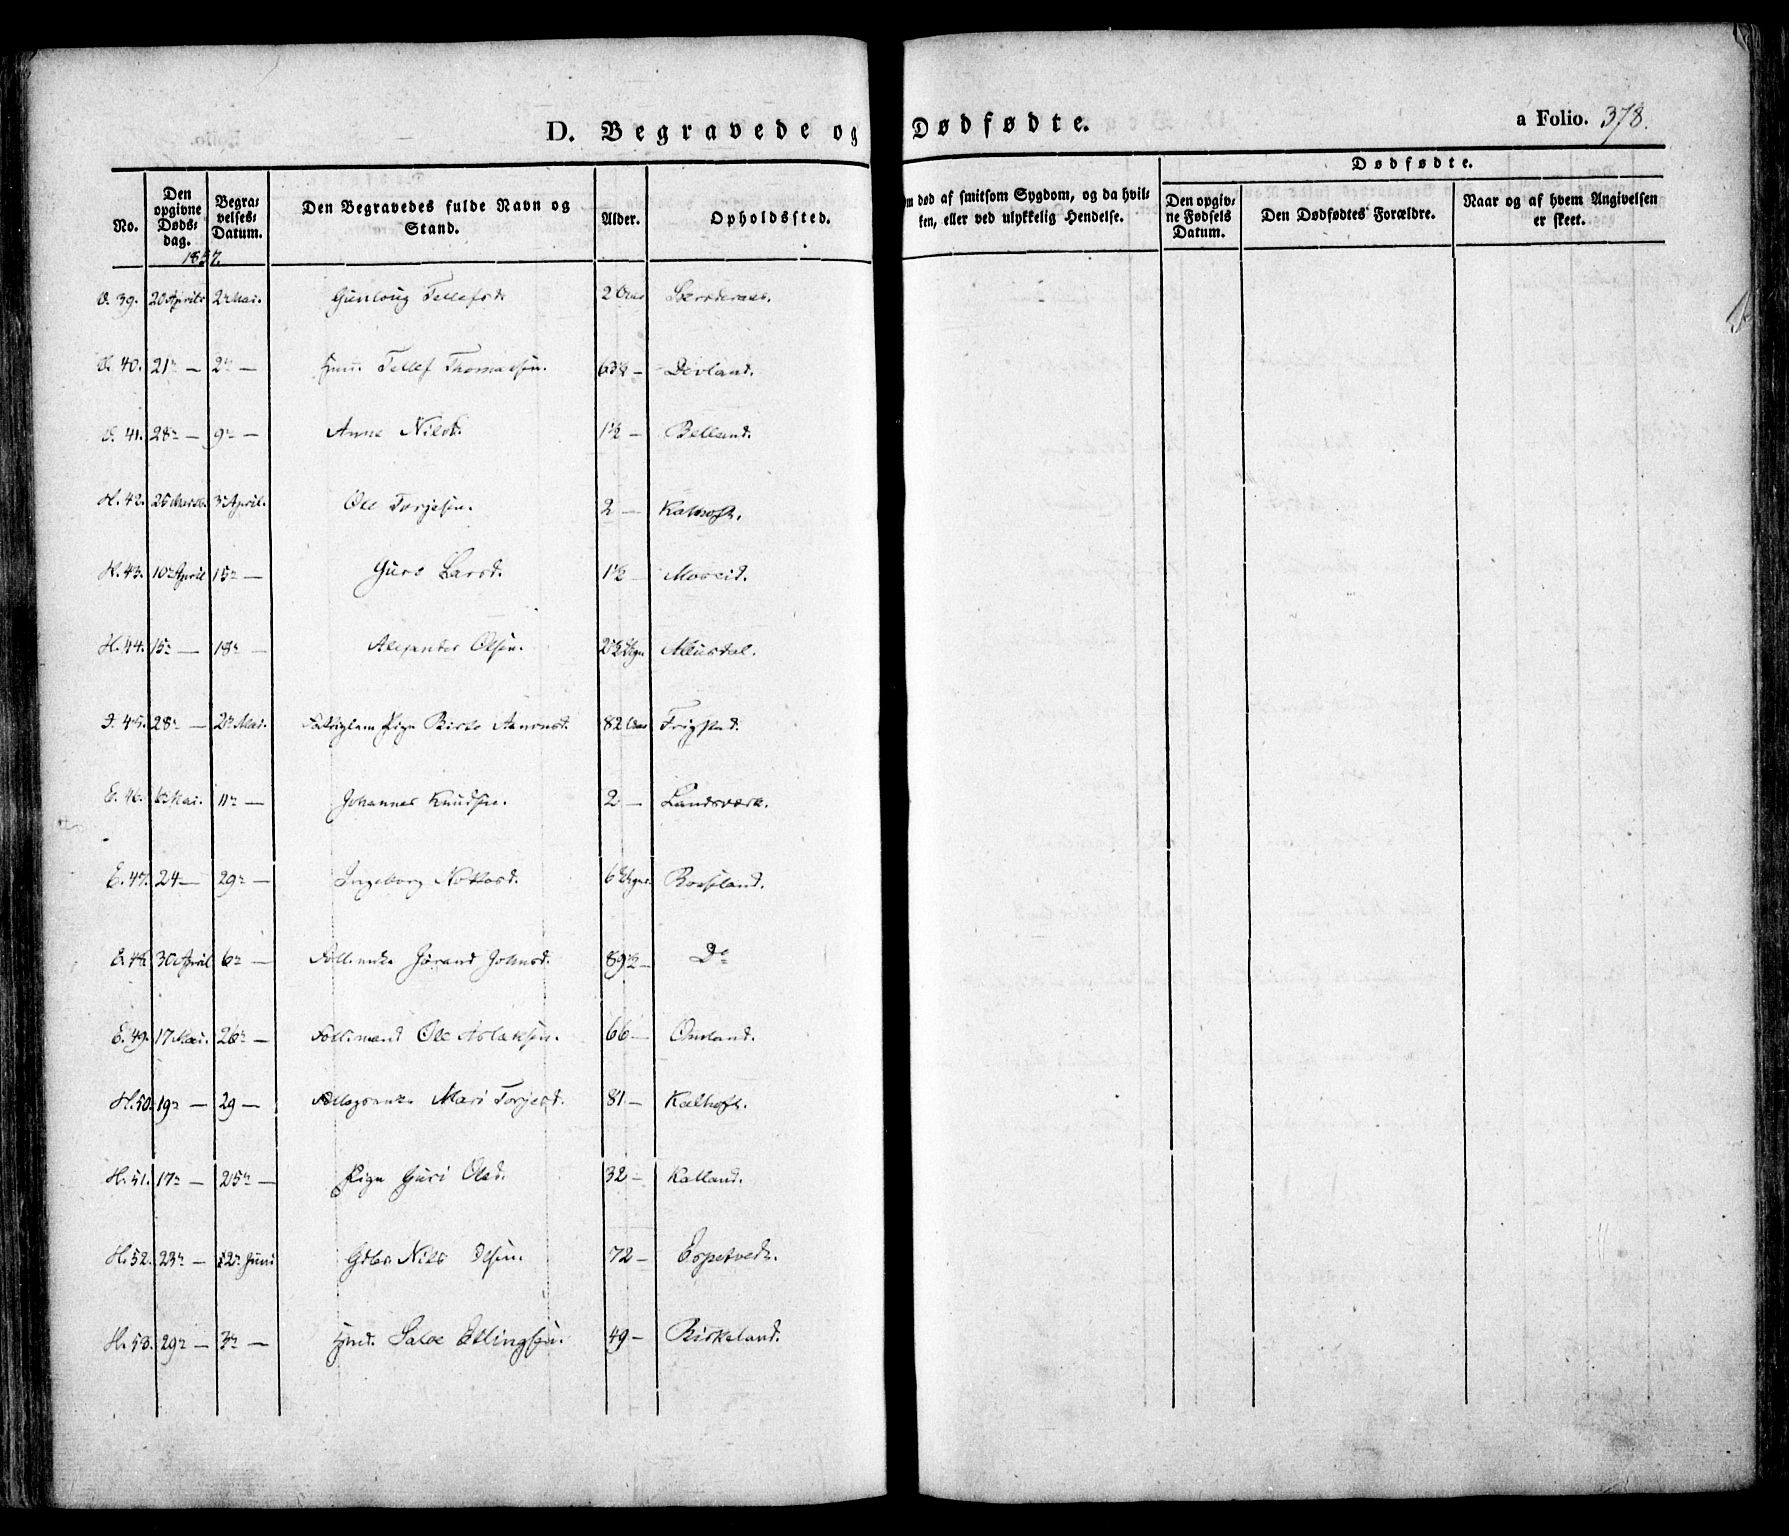 D. Begravede og Dødfødte.
a Folio. 378.
No.
Den opgivne Døds-dag.
Begra-velses-Datum.
Den Begravedes fulde Navn og Stand.
Alder.
Opholdssted.
død af smitsom Sygdom, og da hvil-ken, eller ved ulykkelig Hendelse.
Dødfødte.
Den opgiv-ne Fødsels Datum.
Den Dødfødtes Forældre.
Naar og af hvem Angivelsen er skeet.
1857.
39. 20 April 2 Mai. Gunloug Tellefsd. 2
40. 21 — 2 — Tellef Thomassen. — Devland.
41. 28 — 9 — Anne Nilsd. 1½ — Belland.
H. 42. 26 Marts 3 April. Ole Torjesen. 2 — Kalhoft.
H. 43. 10 April 15 — Guro Larsd. 1½ — Moseid.
H. 44. 15 — 18 — Alexander Olsen. Musdal.
45. 28 — 2 Mai. Pige Birte Aanensd. 82 Frigstad.
E. 46. 6 Mai. 11 — Johannes Knudsen. 2 — Landsværk.
E. 47. 24 — 29 — Ingeborg 6 Rossland.
E. 48. 30 April 6 — Jørand Johnsd. 89½ — Do
E. 49. 17 Mai. 26 — Ole Aslaksen. 66 — Omland.
H. 50. 19 — 29 — Mari Torjesd. 81 — Kalhoft.
H. 51. 17 — 25 — Pige Guri Olsd. 32 — Kalland.
H. 52. 23 — 2 Juni Gdbr Nils Olsen. 72 — Espetvedt.
H. 53. 29 — 3 — Salve Ellingsen. 49 — Birkeland.